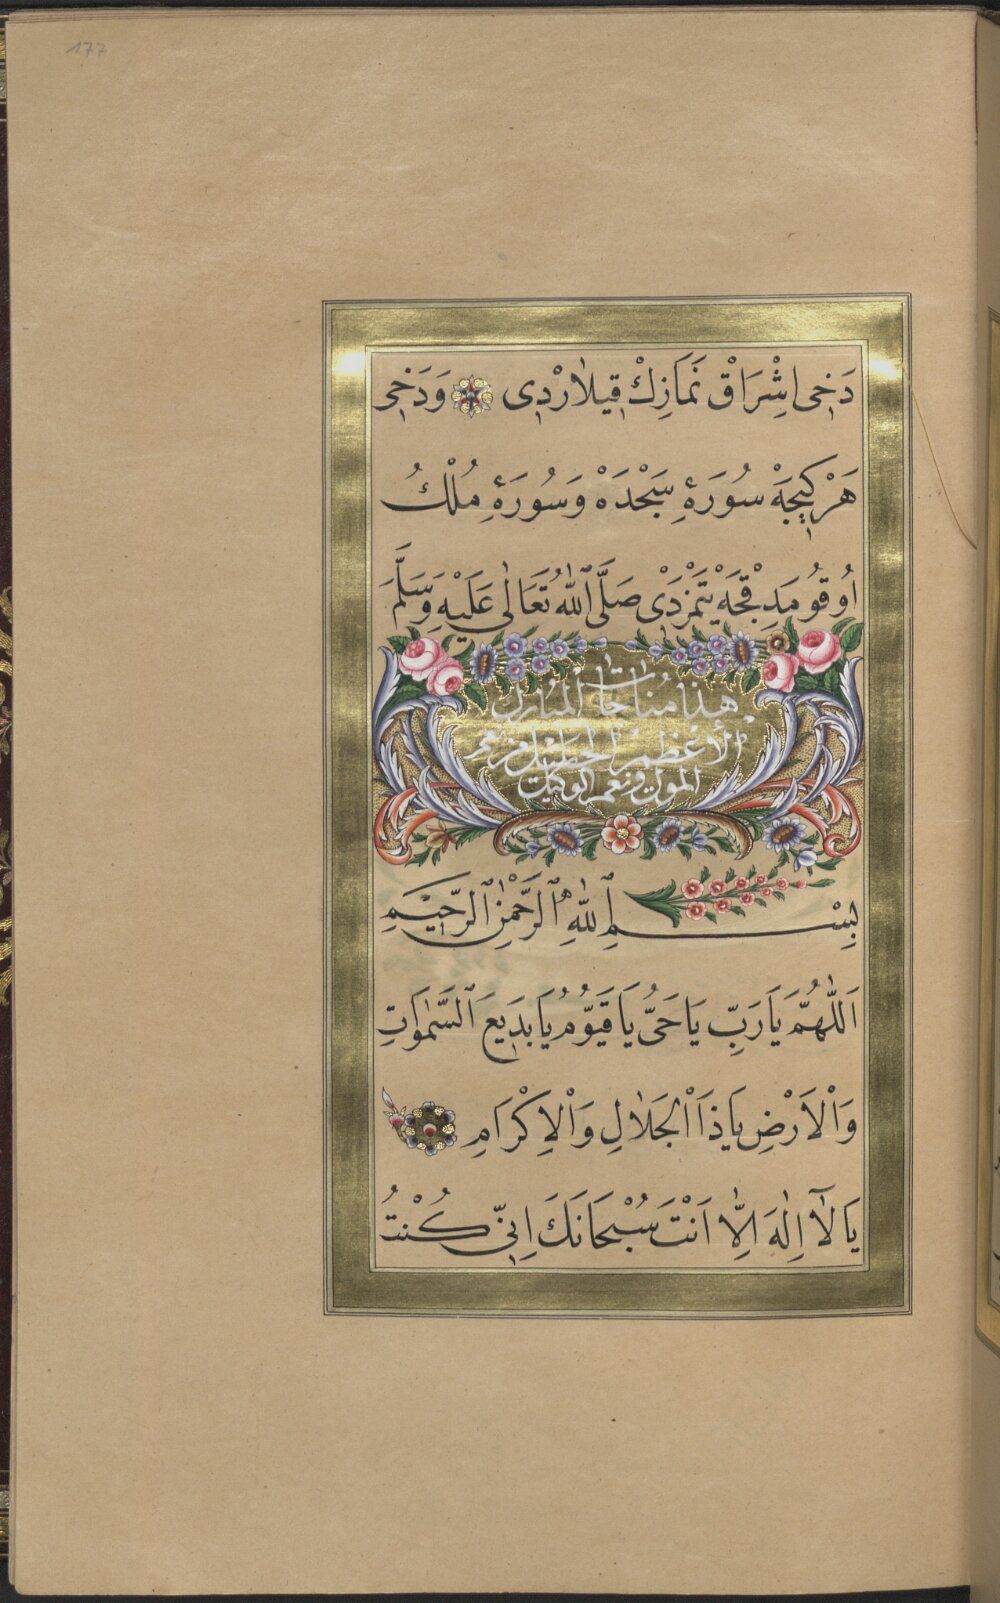 177
دَخِى اِشْرَاقْ نَمَازِكْ قِيلَارْدِى وَدَخِى
هَرْ كِيجَهْ سُورَۀِ سَجْدَهْ وَسُورَۀِ مُلْكُ
اُوقُومَدِقْجَهْ يَتْمَزْدَىْ صَلَّى ٱللّٰهُ تَعَالٰى عَلَيْهِ وَسَلَّمَ
هذا مناجات المبارك
الأعظم الجليل من نعم
المولى ونعم الوكيل
بِسْمِ ٱللّٰهِ ٱلرَّحْمٰنِ ٱلرَّحِيْمِ
اَللّٰهُمَّ يَارَبِّ يَاحَىُّ يَاقَيُّومُ يَابَدِيعَ ٱلسَّمٰوَاتِ
وَاْلاَرْضِ يَاذَا اْلجَلاٰلِ وَاْلاِكْرَامِ
يَالآَ اِلٰهَ اِلاَّ اَنْتَ سُبْحَانَكَ اِنِّى كُنْتُ